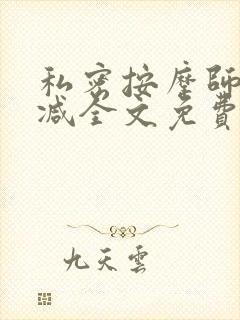 私密按摩師
減全文免費
九天雲